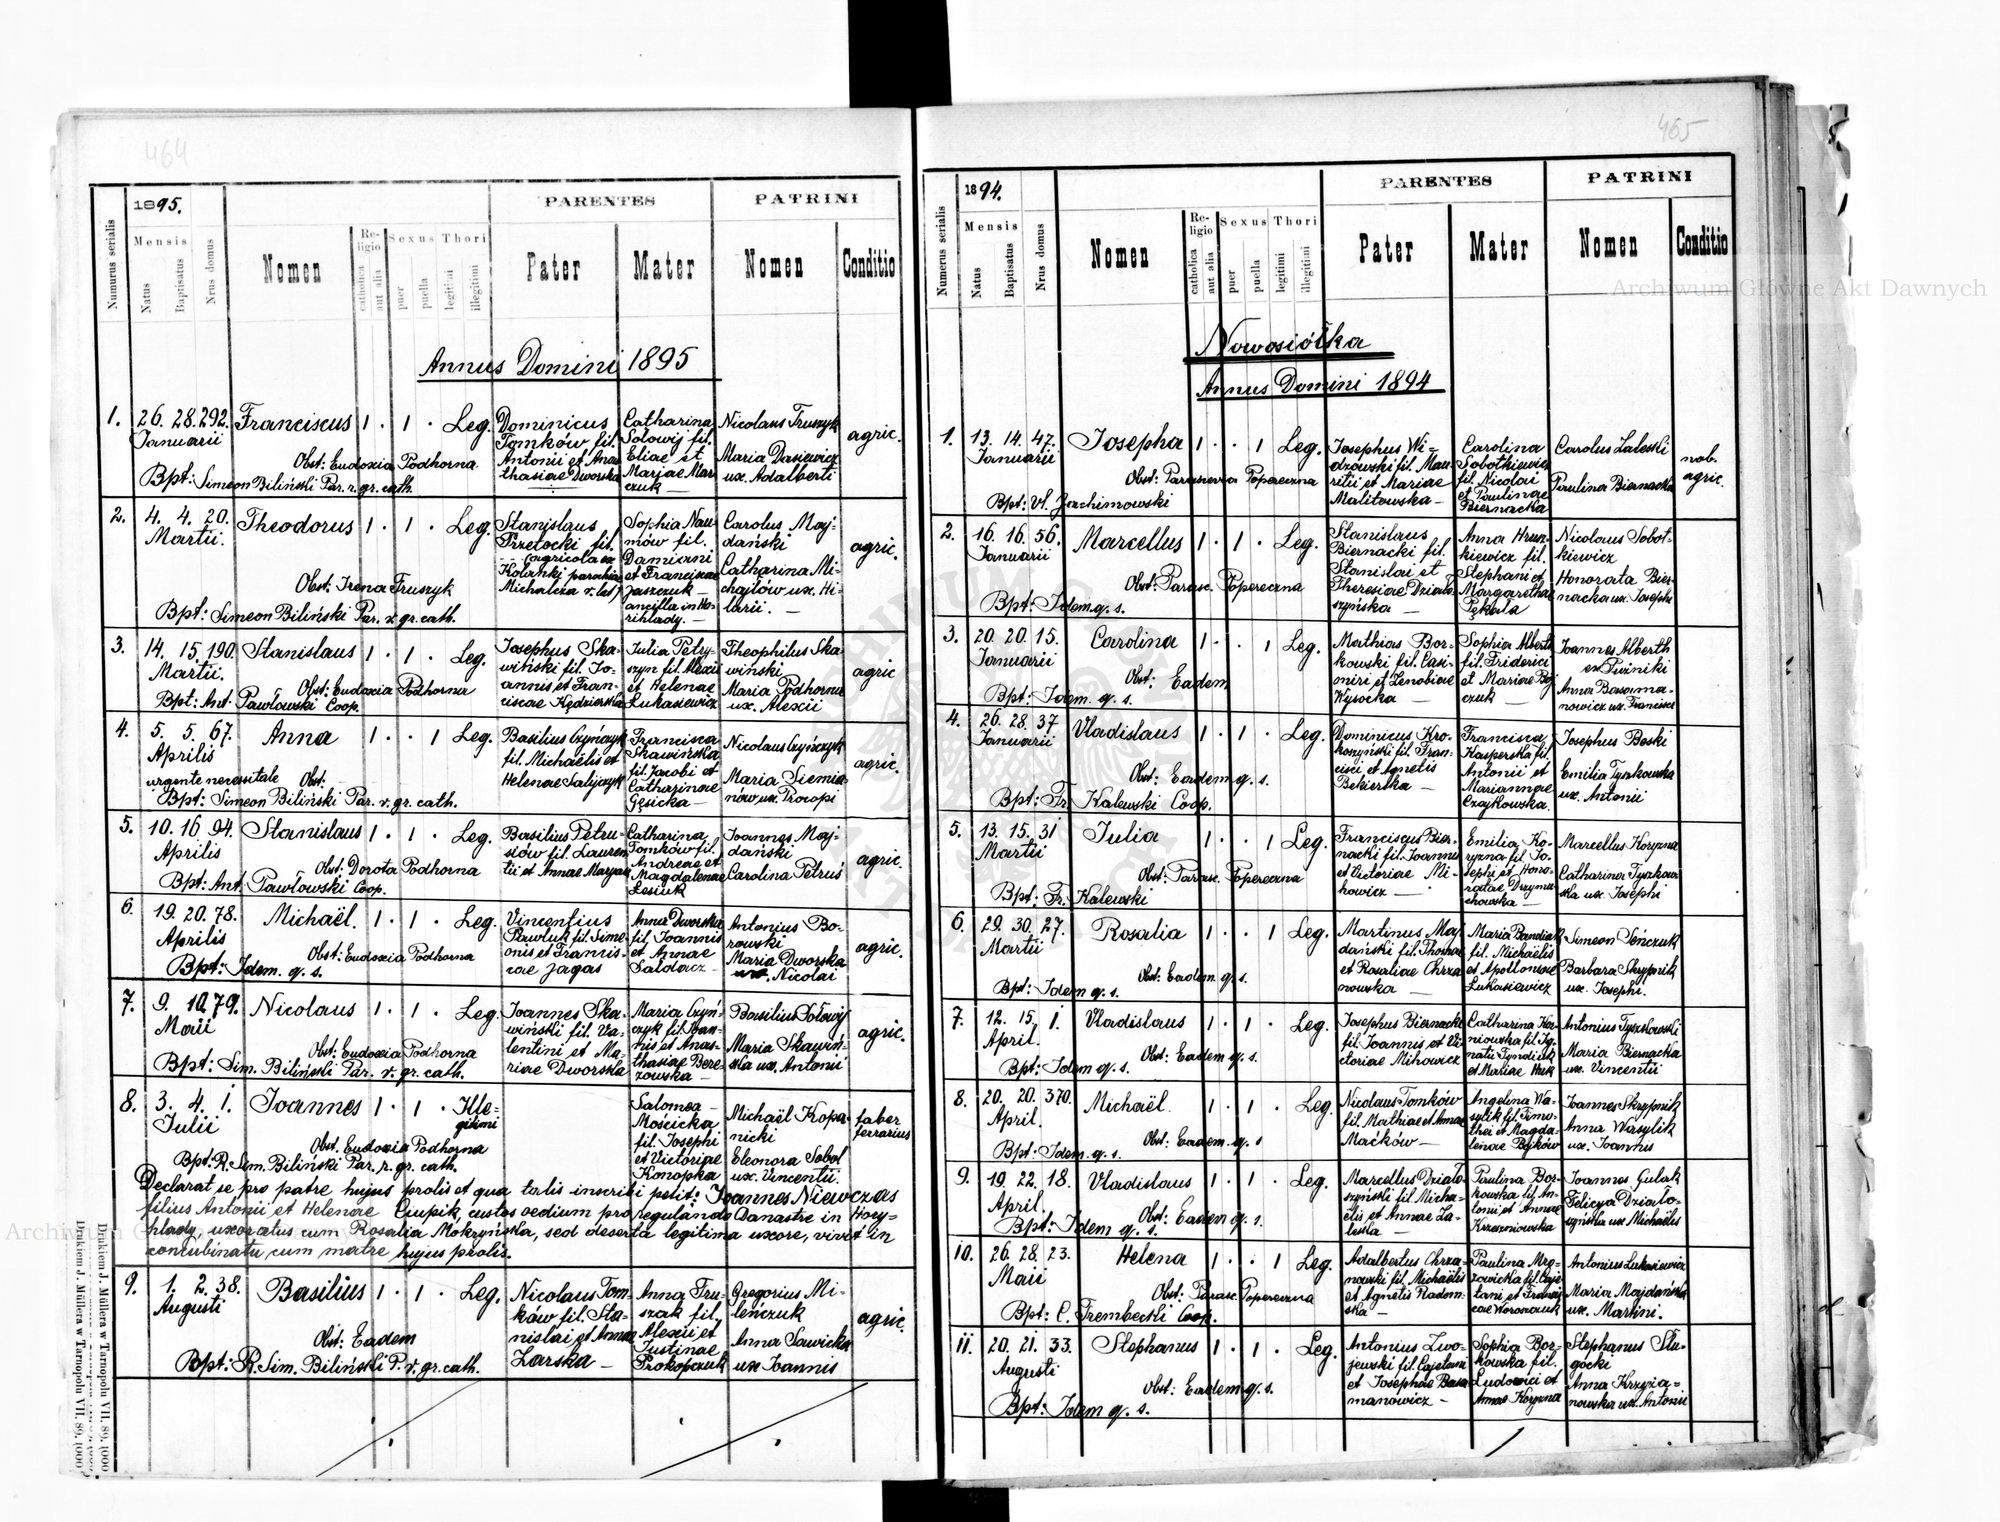 464
1895.
PARENTES
PATRINI
Numerus serialis
Mensis
Natus
Baptisatus
Nrus domus
Nomen
Religio
catholica
aut alia
Sexus
puer
puella
Thori
legitimi
illegitimi
Pater
Mater
Nomen
Conditio
Annus Domini 1895
1. 26. 28. 292. Franciscus 1 · 1 · Leg.
Januarii
Obst: Eudoxia Podhorna
Bpt: Simeon Biliński Par. r. gr. cath.
Dominicus
Tomków fil.
Antonii et Anas
thasiae Dworska
Catharina
Sołowij fil.
Eliae et
Mariae Mar
czuk —
Nicolaus Fruszyk
Maria Dasiewicz
ux. Adalberti
agric.
2. 4. 4. 20. Theodorus 1 · 1 · Leg.
Martii.
Obst: Irena Fruszyk
Bpt: Simeon Biliński Par. r. gr. cath.
Stanislaus
Przetocki fil.
(agricola ex
Kolanki parochiae
Michalcka r. lat)
Sophia Nau
mów fil.
Damiani
et Franciscae
Jaszczuk —
ancilla in Ho
rihlady. —
Carolus Maj-
dański
Catharina Mi-
chajlów ux. Hi-
larii. —
agric.
3. 14. 15. 190. Stanislaus 1 · 1 · Leg.
Martii.
Obst: Eudoxia Podhorna
Bpt: Ant. Pawłowski Coop.
Josephus Ska-
wiński fil. Jo-
annis et Fran-
ciscae Kędzierska
Julia Petry-
szyn fil. Alexii
et Helenae
Łukasiewicz
Theophilus Ska
wiński
Maria Podhorna
ux. Alexii
agric
4. 5. 5. 67. Anna 1 · · 1 Leg.
Aprilis
urgente necessitate Obst:
Bpt: Simeon Biliński Par. r. gr. cath.
Basilius Czyńczyk
fil. Michaëlis et
Helenae Salijczyk
Francisca
Skawińska
fil. Jacobi et
Catharinae
Gęsicka —
Nicolaus Czyńczyk
Maria Siemia
nów ux. Procopi
agric.
5. 10. 16 94. Stanislaus 1 · 1 · Leg.
Aprilis
Obst: Dorota Podhorna
Bpt: Ant. Pawłowski Coop.
Basilius Petru-
sów fil. Lauren
tii et Annae
Catharina
Tomków fil.
Andreae et
Magdalenae
Lesiuk
Joannes Maj-
dański
Carolina Petruś
agric.
6. 19. 20. 78. Michaël. 1 · 1 · Leg.
Aprilis
Obst: Eudoxia Podhorna
Bpt: Idem. q. s.
Vincentius
Pawluk fil. Sime-
onis et Francis-
cae Jagas
Anna Dworska
fil. Joannis
et Annae
Antonius Bo-
rowski
Maria Dworska
ux. Nicolai
agric.
7. 9. 10. 79. Nicolaus 1 · 1 · Leg.
Maii
Obst: Eudoxia Podhorna
Bpt: Sim. Biliński Par. r. gr. cath.
Joannes Ska-
wiński fil. Va-
lentini et Ma-
riae Dworska
Maria Czyń-
czyk fil. Joan-
nis et Anas-
thasiae Bere-
zowska —
Basilius Sołowij
Maria Skawiń-
ska ux. Antonii
agric.
8. 3. 4. 1. Joannes 1 · 1 · Ille-
gitimi
Julii
Obst. Eudoxia Podhorna
Bpt: R. Sim. Biliński Par. r. gr. cath.
Salomea —
Mościcka
fil. Josephi
et Victoriae
Konopka
Michaël Kopa-
nicki
Eleonora Sobol
ux. Vincentii.
faber
ferrarius
Declarat se pro patre hujus prolis et qua talis inscribi petit: Joannes Niewczas
filius Antonii et Helenae Czupik, custos aedium pro regulando Danastre in Hory-
hlady, uxoratus cum Rosalia Mokryńska, sed deserta legitima uxore, vivit in
concubinatu cum matre hujus prolis.
9. 1. 2. 38. Basilius 1 · 1 · Leg.
Augusti
Obst: Eadem
Bpt: R. Sim. Biliński P. r. gr. cath.
Nicolaus Tom
ków fil. Sta-
nislai et Annae
Zarska —
Anna Fru-
szak fil.
Alexii et
Justinae
Prokopczuk
Gregorius Mi-
leńczuk
Anna Sawicka
ux Joannis
agric.
Drukiem J. Müllera w Tarnopolu VII. 89. 1000
465
1894.
PARENTES
PATRINI
Numerus serialis
Mensis
Natus
Baptisatus
Nrus domus
Nomen
Religio
catholica
aut alia
Sexus
puer
puella
Thori
legitimi
illegitimi
Pater
Mater
Nomen
Conditio
Nowosiółka
Annus Domini 1894
1. 13. 14. 47. Josepha 1 · · 1 Leg.
Januarii
Obst: Parascevia Popereczna
Bpt: Vl. Joachimowski
Josephus Wi-
dzowski fil. Mau-
ritii et Mariae
Malitowska —
Carolina
Sobotkiewicz
fil. Nicolai
et Paulinae
Biernacka
Carolus Zaleski
Paulina Biernacka
nob.
agric.
2. 16. 16. 56. Marcellus 1 · 1 · Leg.
Januarii
Obst: Parasc. Popereczna
Bpt: Idem q. s.
Stanislaus
Biernacki fil.
Stanislai et
Theresiae Działo
szyńska —
Anna Hrusz-
kiewicz fil.
Stephani et
Margarethae
Pękala
Nicolaus Sobot-
kiewicz
Honorata Bier-
nacka ux. Josephi
3. 20. 20. 15. Carolina 1 · · 1 Leg.
Januarii
Obst: Eadem
Bpt: Idem. q. s.
Mathias Bor-
kowski fil. Casi-
miri et Zenobiae
Wysocka —
Sophia Alberth
fil. Friderici
et Mariae Boj
czuk —
Joannes Alberth
ex Puźniki
Anna Basama-
nowicz ux. Francisci
4. 26. 28. 37 Vladislaus 1 · 1 · Leg.
Januarii
Obst: Eadem q. s.
Bpt: Fr. Kalewski Coop.
Dominicus Kro-
koszyński fil. Fran-
cisci et Agnetis
Bekierska —
Francisca
Kasperska fil.
Antonii et
Mariannae
Czajkowska.
Josephus Boski
Emilia Tyszkowska
ux. Antonii
5. 13. 15. 31 Julia 1 · · 1 Leg.
Martii
Obst: Parasc. Popereczna
Bpt: Fr. Kalewski
Franciscus Bier-
nacki fil. Joannis
et Victoriae Mi-
howicz —
Emilia Ko-
ryzna fil. Jo-
sephi et Hono-
ratae Drymu-
chowska —
Marcellus Koryzna
Catharina Tyszkow
ska ux. Josephi
6. 29. 30. 27. Rosalia 1 · · 1 Leg.
Martii
Obst: Eadem q. s.
Bpt: Idem q. s.
Martinus Maj
dański fil. Thomae
et Rosaliae Chrza
nowska —
Maria Bandiak
fil. Michaëlis
et Apolloniae
Łukasiewicz
Simeon Seńczuk
Barbara Skrypnik
ux. Josephi.
7. 12. 15. 1. Vladislaus 1 · 1 · Leg.
April.
Obst: Eadem q. s.
Bpt: Idem q. s.
Josephus Biernacki
fil. Joannis et Vi
ctoriae Mihowicz
Catharina Ka-
niowska fil. Ig-
natii Tyndiuk
et Mariae Huk
Antonius Tyszkowski
Maria Biernacka
ux. Vincentii
8. 20. 20. 370. Michaël. 1 · 1 · Leg.
April.
Obst: Eadem. q. s
Bpt: Idem. q. s.
Nicolaus Tomków
fil. Mathiae et Annae
Maćków —
Angelina Wa-
sylik fil. Timo-
thei et Magda-
lenae Bojków
Joannes Skrypnik
Anna Wasylik
ux. Joannis
9. 19. 22. 18. Vladislaus 1 · 1 · Leg.
April.
Obst: Eadem q. s.
Bpt: Idem q. s.
Marcellus Działo
szyński fil. Micha-
ëlis et Annae Za-
leska —
Paulina Bor-
kowska fil. An-
tonii et Annae
Krzesniowska
Joannes Gulak
Felicya Działo-
szyńska ux. Michaëlis
10. 26. 28. 23. Helena 1 · · 1 Leg.
Maii
Obst: Parasc. Popereczna
Bpt: C. Trembecki Coop.
Adalbertus Chrza-
nowski fil. Michaëlis
et Agnetis Radom-
ska —
Paulina Mro-
zowicka fil. Caje
tani et Francis
cae Woroszczuk
Antonius Łukasiewicz
Maria Majdańska
ux. Martini.
11. 20. 21. 33. Stephanus 1 · 1 · Leg.
Augusti
Obst: Eadem q. s.
Bpt: Idem q. s.
Antonius Zwo-
jewski fil. Cajetani
et Josephae Basa
manowicz —
Sophia Bor-
kowska fil.
Ludovici et
Annae Koryzna
Stephanus Słu-
gocki
Anna Krzyża-
nowska ux. Antonii
Archiwum Główne Akt Dawnych